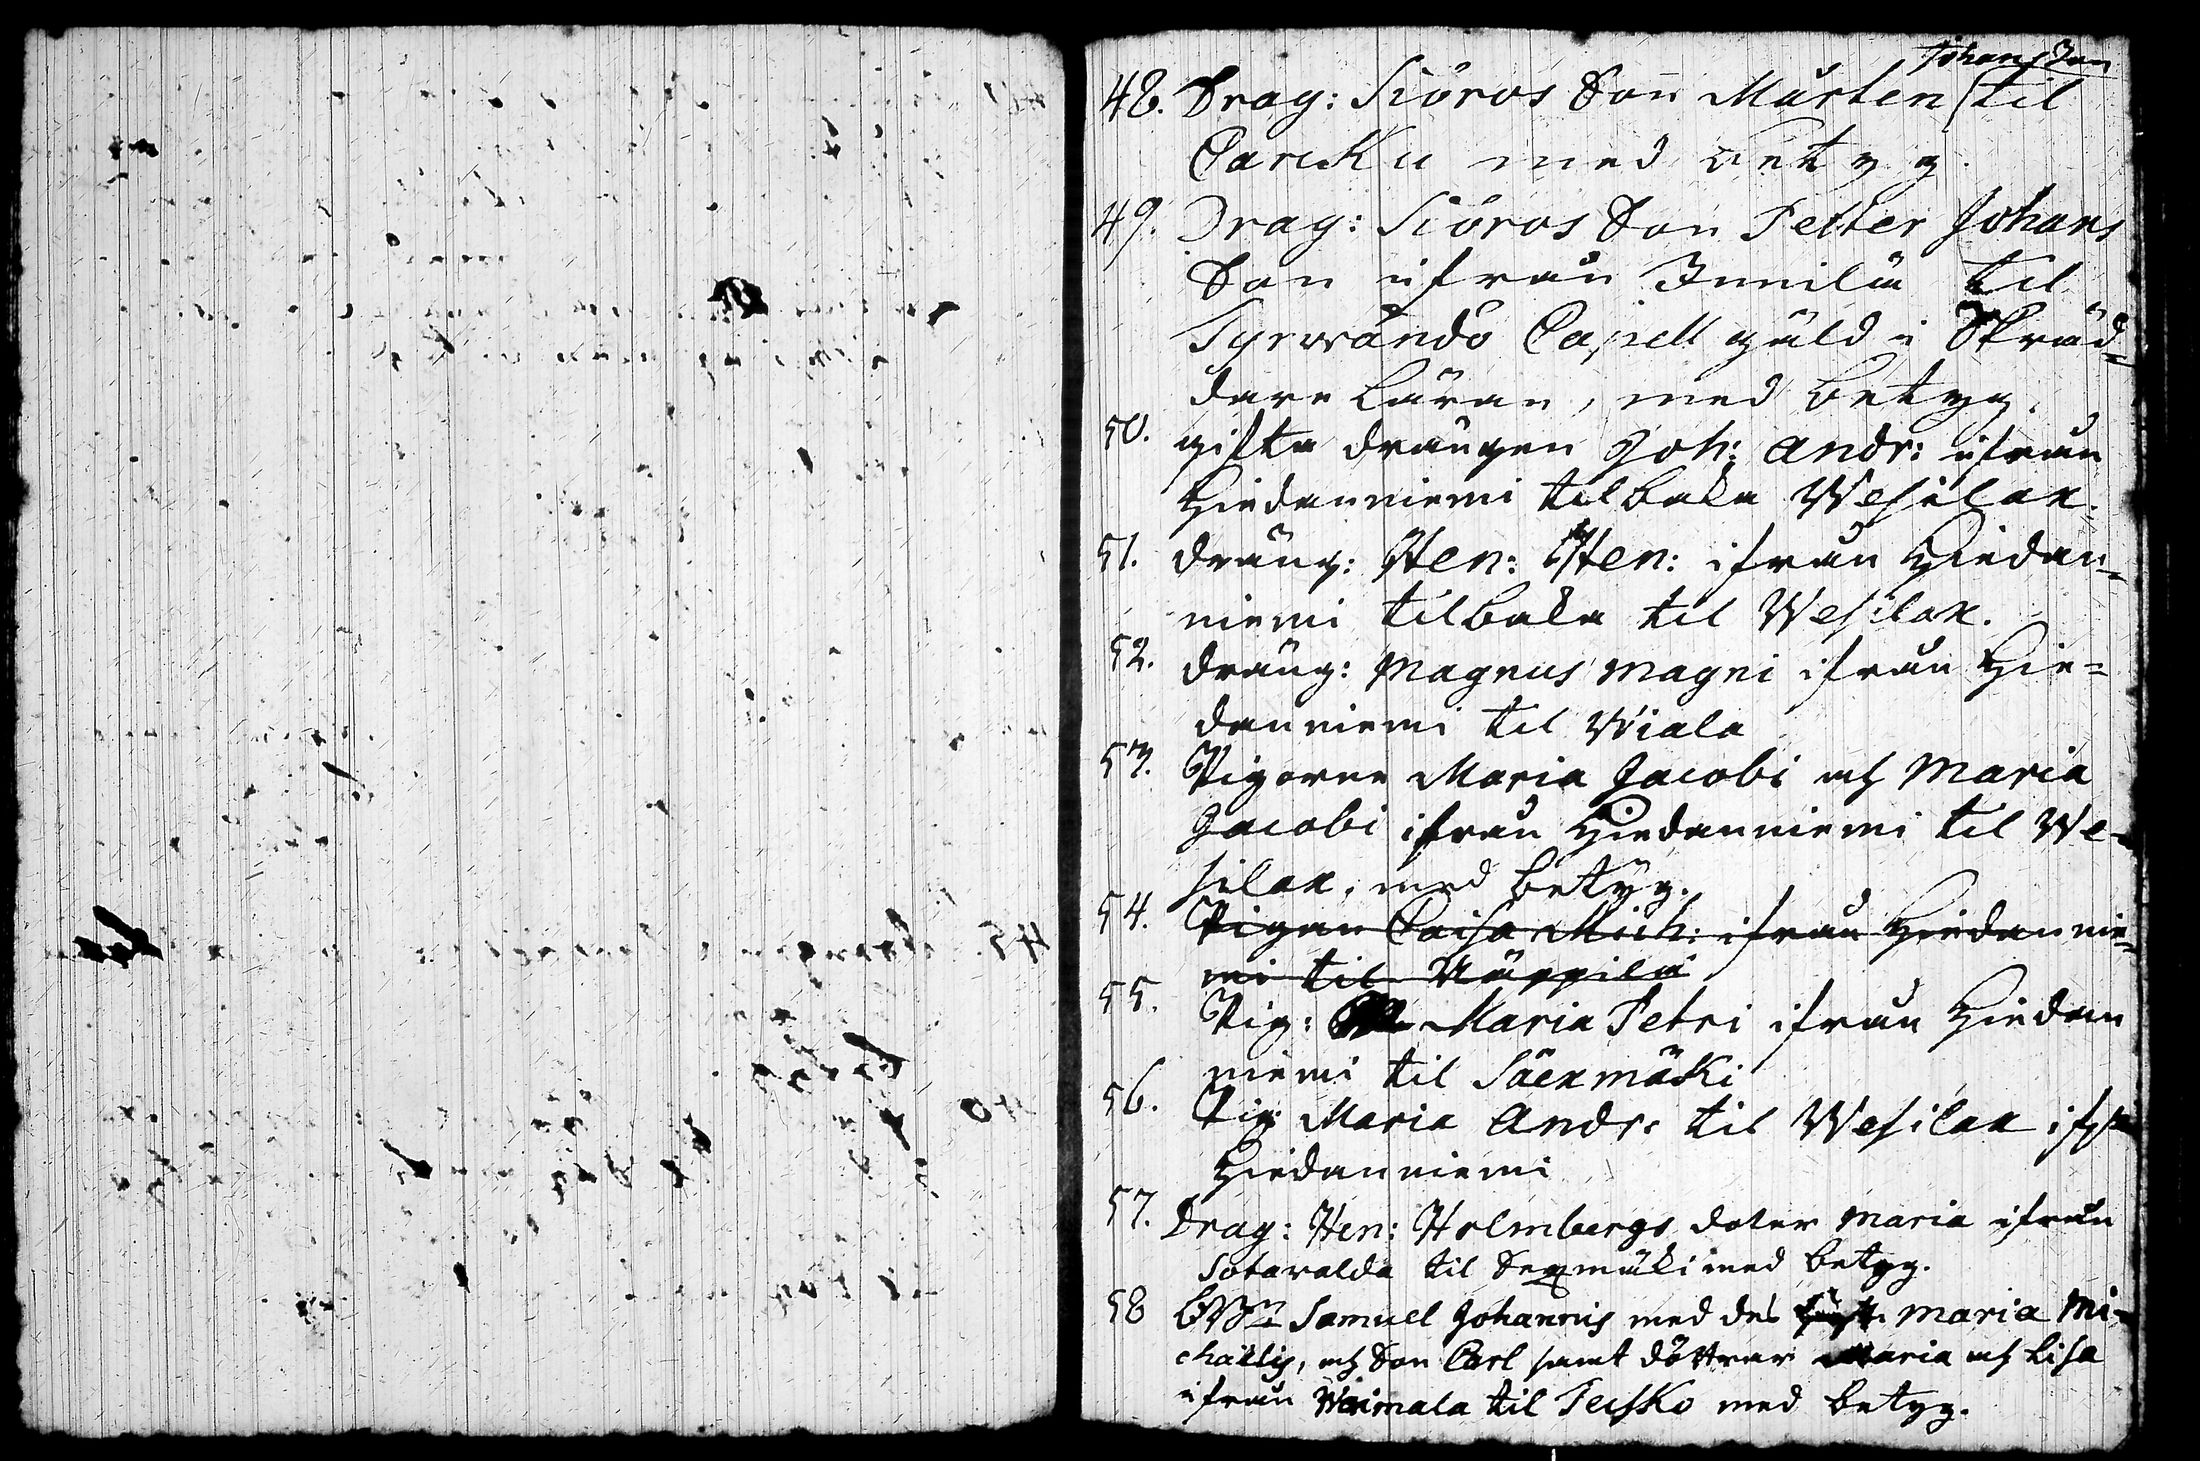 Johans Son
48. Drag: Sjöros Son Mårten til
Parcku med betyg.
49. Drag: Sjöros Son Petter Johans
Son ifrån Innilä til
Tyrwändö Capell gäld i Skräd=
dare Läran, med betyg.
50. gifta drängen Joh: Andr: ifrån
Hiedanniemi tilbaka Wesilax.
51. dräng: Hen: Hen: ifrån Hiedan=
niemi tilbaka til Wesilax.
52. dräng: Magnus Magni ifrån Hie=
danniemi til Wiala
53. Pigorne Maria Jacobi och Maria
Jacobi ifrån Hiedanniemi til We=
silax, med betyg.
54. Pigan Caisa Mich: ifrån Hiedannie=
mi til Näppilä
55. Pig: Maria Petri ifrån Hiedan
niemi til Säexmäki
56. Pig: Maria Andr: til Wesilax ifr
Hiedanniemi
57. Drag: Hen: Holmbergs doter Maria ifrån
Sotavalda til Sexmäki med betyg.
58 Samuel Johannis med des Maria Mi=
chaëlis, och Son Carl samt döttrar Maria och Lisa
ifrån Waimala til Teisko med betyg.